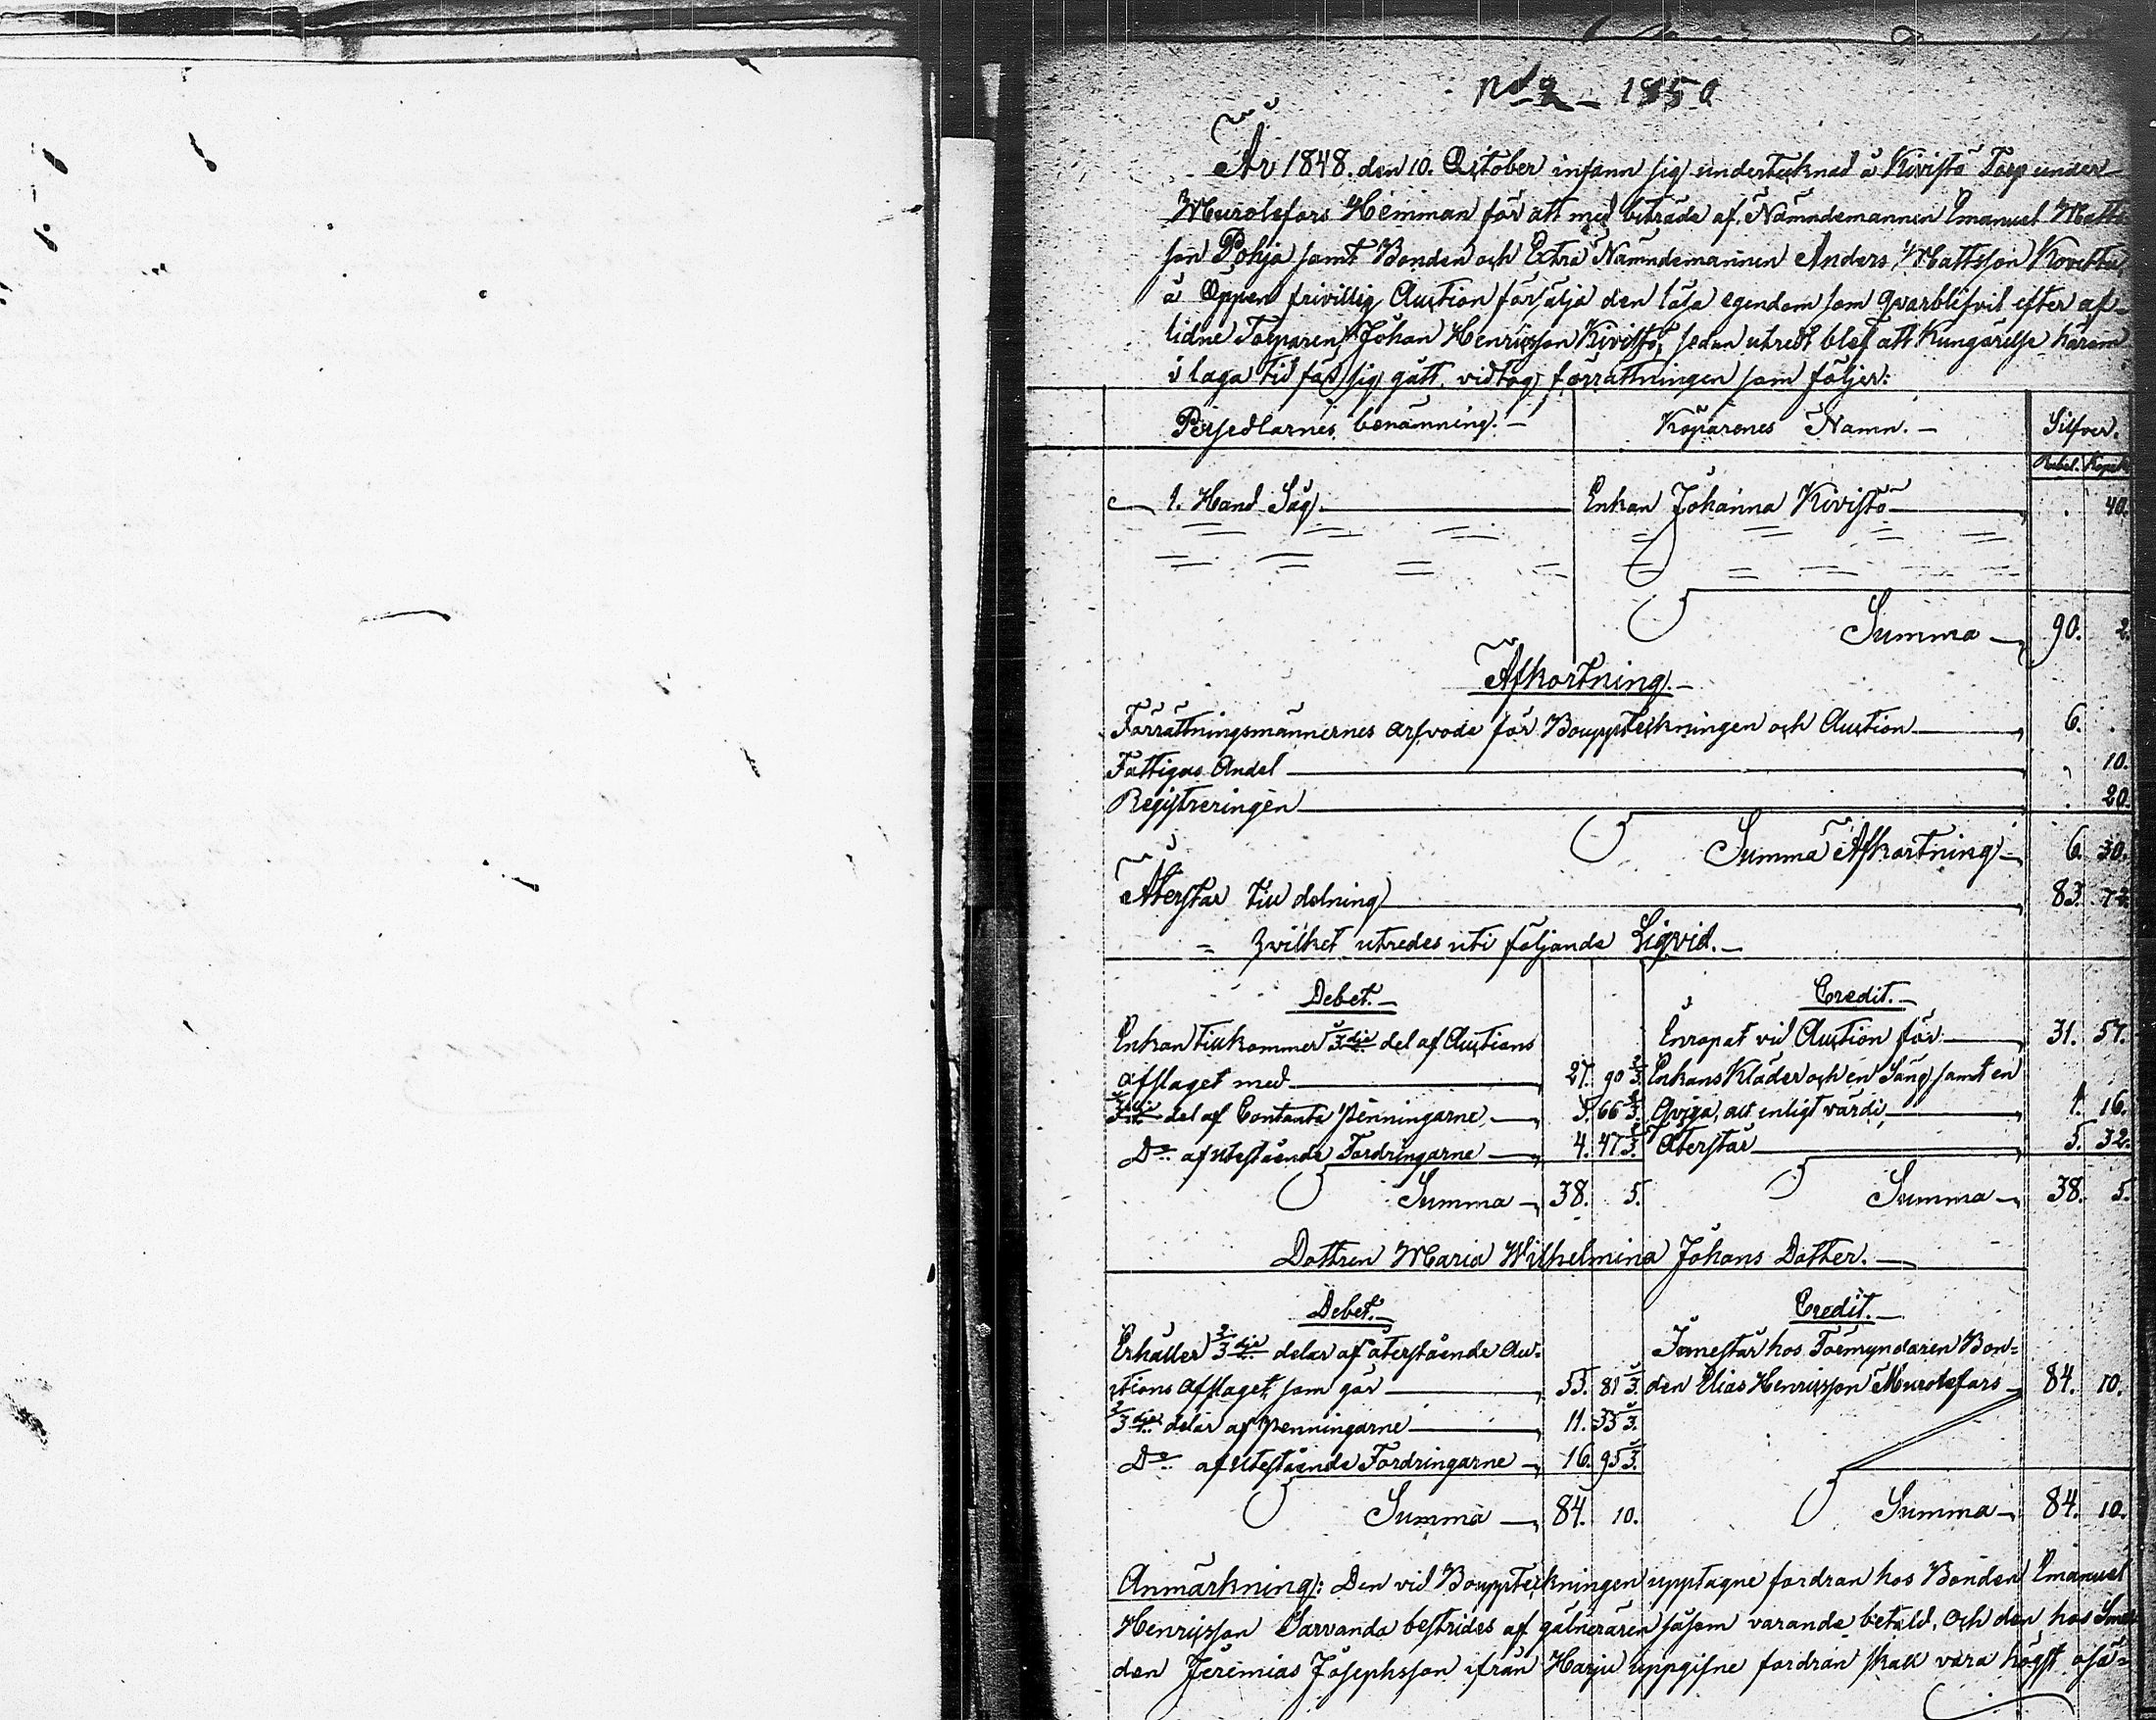 No 2 1850
År 1848. den 10. October infann sig undertecknad å Kivistö Torp under
Murolefors Hemman för att med biträde af Nämndemannen Emanuel Matts
son Pohja samt Bonden och Extra Nämndemannen Anders Mattsson
å Öppen frivillig Auction försälja den lösa egendom som qvarblifvit efter af-
lidne Torparen Johan Henricsson Kivistö; sedan utredt blef att Kungörelse härom
i laga tid för sig gått, vidtog förrättningen som följer:
Persedlarnes benämning. Köparenes Namn. Silfver.
Rubel. Kopek
1. Hand Såg. Enkan Johanna Kivistö . 40.
Summa 90. 2.
Afkortning.
Förrättningsmännernes arfvode för Bouppteckningen och Auction 6. .
Fattigas Andel . 10.
Registreringen . 20.
Summa Afkortning 6. 30.
Återstår till delning 83. 72.
= hvilket utredes uti följande Liqvid.
Debet. Credit.
Enkan tillkommer 1/3dje del af Auctions Inropat vid Auction för 31. 57.
afslaget med 27. 90 2/3. Enkans Kläder och en Säng samt en
1/3dje del af Contanta penningarne 5. 66 2/3. Qviga, allt enligt värdi 1. 16.
Do af utestående Fordringarne 4. 47 2/3. Återstår 5. 32.
Summa 38. 5. Summa 38. 5.
Dottren Maria Wilhelmina Johans Dotter.
Debet. Credit.
Erhåller 2/3dje delar af återstående Au= Innestår hos Förmyndaren Bon=
ctions afslaget, som gör 55. 81 1/3. den Elias Henricsson Murolefors 84. 10.
2/3dje delar af penningarne 11. 33 1/3.
Do af Utestående Fordringarne 16. 95 1/3.
Summa 84. 10. Summa 84. 10.
Anmärkning: Den vid Bouppteckningen upptagne fordran hos Bonden Emanuel
Henricsson Sarvanda bestrides af gäldenären såsom varande betald, och den hos
den Jeremias Josephsson ifrån Harju uppgifne fordran skall vara högst oså=